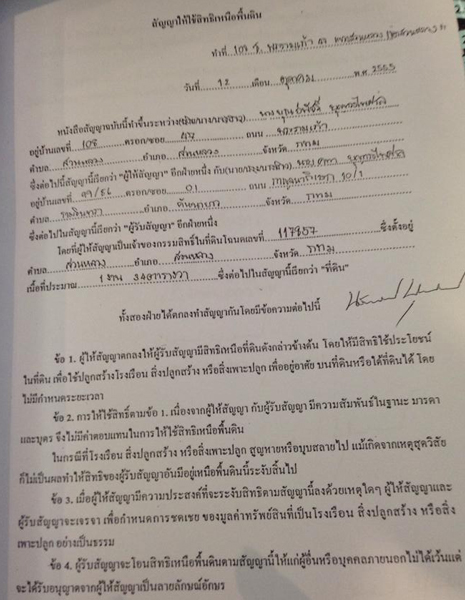 สัญญาให้ใช้สิทธิเหนือพื้นดิน
ทำที่ 108
วันที่ 12 เดือน ตุลาคม พ.ศ. 2555
หนังสือสัญญาฉบับนี้ทำขึ้นระหว่าง
อยู่บ้านเลขที่ 108 ตรอก/ซอย ถนน
ตำบล สวนหลวง อำเภอ สวนหลวง จังหวัด กทม
ซึ่งต่อไปนี้สัญญานี้เรียกว่า "ผู้ให้สัญญา" อีกฝ่ายหนึ่ง กับ
อยู่บ้านเลขที่ 99/56 ตรอก/ซอย 01 ถนน กาญจนาภิเษก 10/1
ตำบล อำเภอ คันนายาว จังหวัด กทม
ซึ่งต่อไปในสัญญานี้เรียกว่า "ผู้รับสัญญา" อีกฝ่ายหนึ่ง
โดยที่ผู้ให้สัญญาเป็นเจ้าของกรรมสิทธิ์ในที่ดินโฉนดเลขที่ 117857 ซึ่งตั้งอยู่
ตำบล สวนหลวง อำเภอ สวนหลวง จังหวัด กทม
เนื้อที่ประมาณ 1 งาน 34 ตารางวา ซึ่งต่อไปในสัญญานี้เรียกว่า "ที่ดิน"
ทั้งสองฝ่ายได้ตกลงทำสัญญากันโดยมีข้อความต่อไปนี้
ข้อ 1. ผู้ให้สัญญาตกลงให้ผู้รับสัญญามีสิทธิเหนือที่ดินดังกล่าวข้างต้น โดยให้มีสิทธิใช้ประโยชน์
ในที่ดิน เพื่อใช้ปลูกสร้างโรงเรือน สิ่งปลูกสร้าง หรือสิ่งเพาะปลูก เพื่ออยู่อาศัย บนที่ดินหรือใต้ที่ดินได้ โดย
ไม่มีกำหนดระยะเวลา
ข้อ 2. การให้ใช้สิทธิ์ตามข้อ 1. เนื่องจากผู้ให้สัญญา กับผู้รับสัญญา มีความสัมพันธ์ในฐานะ มารดา
และบุตร จึงไม่มีค่าตอบแทนในการให้ใช้สิทธิเหนือพื้นดิน
ในกรณีที่โรงเรือน สิ่งปลูกสร้าง หรือสิ่งเพาะปลูก สูญหายหรือบุบสลายไป แม้เกิดจากเหตุสุดวิสัย
ก็ไม่เป็นผลทำให้สิทธิของผู้รับสัญญาอันมีอยู่เหนือพื้นดินนี้ระงับสิ้นไป
ข้อ 3. เมื่อผู้ให้สัญญามีความประสงค์ที่จะระงับสิทธิตามสัญญานี้ลงด้วยเหตุใดๆ ผู้ให้สัญญาและ
ผู้รับสัญญาจะเจรจา เพื่อกำหนดการชดเชย ของมูลค่าทรัพย์สินที่เป็นโรงเรือน สิ่งปลูกสร้าง หรือสิ่ง
เพาะปลูก อย่างเป็นธรรม
ข้อ 4. ผู้รับสัญญาจะโอนสิทธิเหนือพื้นดินตามสัญญานี้ให้แก่ผู้อื่นหรือบุคคลภายนอกไม่ได้เว้นแต่
จะได้รับอนุญาตจากผู้ให้สัญญาเป็นลายลักษณ์อักษร